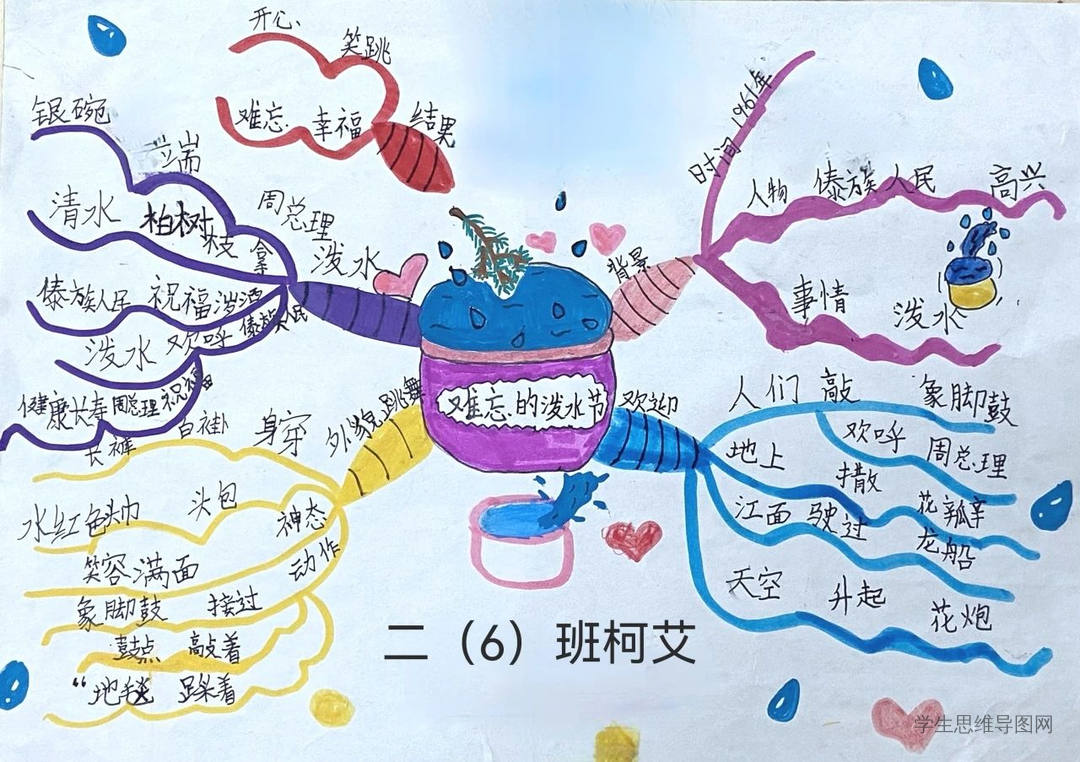 难忘的泼水节
背景
时间 1961年
人物 傣族人民 高兴
事情 泼水
欢迎
人们 敲 象脚鼓
欢呼 周总理
地上 撒 花瓣
江面 驶过 龙船
天空 升起 花炮
外貌 跳舞
身穿 白褂
长裤
头包 水红色头巾
神态
笑容满面
动作
接过 象脚鼓
敲着 鼓点
踩着 “地毯
泼水
周总理
端 银碗
拿 柏树枝
清水
傣族人民 祝福
泼洒
傣族人民
欢呼 泼水
祝福 周总理 健康长寿
结果
开心 笑跳
难忘 幸福
二（6）班柯艾
学生思维导图网